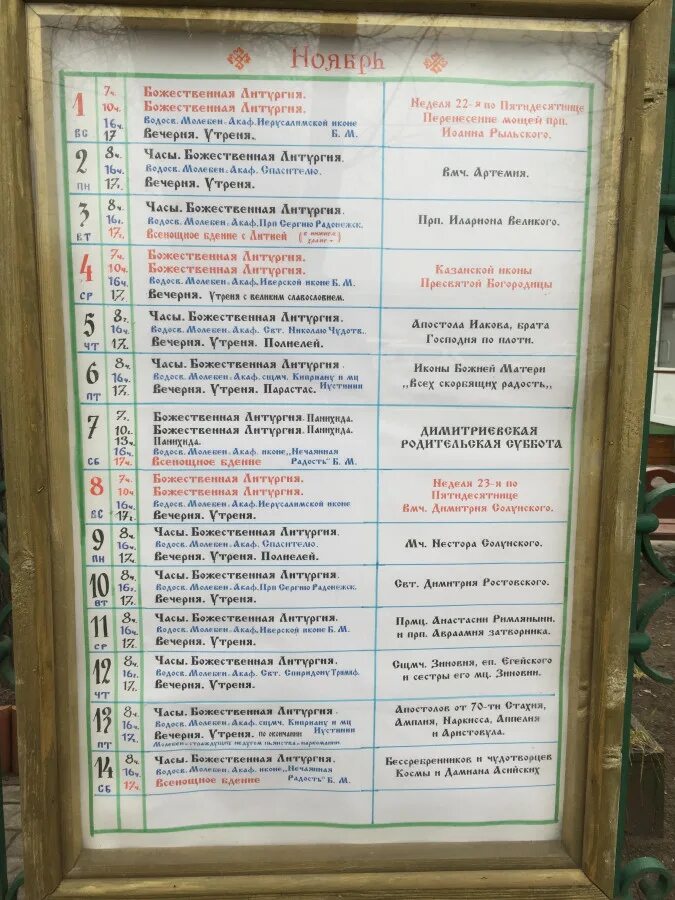 Ноябрь
1
вс
7ч.
10ч.
16ч.
17
Божественная Литургия.
Божественная Литургия.
Водосв. Молебен. Акаф. Иерусалимской иконе
Вечерня. Утреня. Б. М.
Неделя 22-я по Пятидесятнице
Перенесение мощей прп.
Иоанна Рыльского.
2
пн
8ч.
16ч.
17ч.
Часы. Божественная Литургия.
Водосв. Молебен. Акаф. Спасителю.
Вечерня. Утреня.
Вмч. Артемия.
3
вт
8ч.
16ч.
17ч.
Часы. Божественная Литургия.
Водосв. Молебен. Акаф. Прп Сергию Радонежск.
Всенощное бдение с Литией
Прп. Илариона Великого.
4
ср
7ч.
10ч.
16ч.
17ч.
Божественная Литургия.
Божественная Литургия.
Водосв. Молебен. Акаф. Иверской иконе Б. М.
Вечерня. Утреня с великим славословием.
Казанской иконы
Пресвятой Богородицы
5
чт
8ч.
16ч.
17ч.
Часы. Божественная Литургия.
Водосв. Молебен. Акаф. Свт. Николаю Чудотв.
Вечерня. Утреня. Полиелей.
Апостола Иакова, брата
Господня по плоти.
6
пт
8ч.
16ч.
17ч.
Часы. Божественная Литургия.
Водосв. Молебен. Акаф. сщмч. Киприану и мц
Иустинии
Вечерня. Утреня. Парастас.
Иконы Божией Матери
„Всех скорбящих радость„
7
сб
7ч.
10ч.
13ч.
16ч.
17ч.
Божественная Литургия. Панихида.
Божественная Литургия. Панихида.
Панихида.
Водосв. Молебен. Акаф. иконе „Нечаянная
Всенощное бдение Радость" Б. М.
Димитриевская
родительская суббота
8
вс
7ч.
10ч.
16ч.
17ч.
Божественная Литургия.
Божественная Литургия.
Водосв. Молебен. Акаф. Иерусалимской иконе
Вечерня. Утреня.
Неделя 23-я по
Пятидесятнице
Вмч. Димитрия Солунского.
9
пн
8ч.
16ч.
17ч.
Часы. Божественная Литургия.
Водосв. Молебен. Акаф. Спасителю.
Вечерня. Утреня. Полиелей.
Мч. Нестора Солунского.
10
вт
8ч.
16ч.
17ч.
Часы. Божественная Литургия.
Водосв. Молебен. Акаф. Прп Сергию Радонежск.
Вечерня. Утреня.
Свт. Димитрия Ростовского.
11
ср
8ч.
16ч.
17ч.
Часы. Божественная Литургия.
Водосв. Молебен. Акаф. Иверской иконе Б. М.
Вечерня. Утреня.
Прмц. Анастасии Римляныни.
и прп. Авраамия затворника.
12
чт
8ч.
16ч.
17ч.
Часы. Божественная Литургия.
Водосв. Молебен. Акаф. Свт. Спиридону Тримиф.
Вечерня. Утреня.
Сщмч. Зиновия, еп. Егейского
и сестры его мц. Зиновии.
13
пт
8ч.
16ч.
17ч.
Часы. Божественная Литургия.
Водосв. Молебен. Акаф. сщмч. Киприану и мц
Иустинии
Вечерня. Утреня. по окончании
Молебен страждущих недугом пьянства и наркомании.
Апостолов от 70-ти Стахия,
Амплия, Наркисса, Апеллия
и Аристовула.
14
сб
8ч.
16ч.
17ч.
Часы. Божественная Литургия.
Водосв. Молебен. Акаф. иконе „Нечаянная
Всенощное бдение Радость" Б. М.
Бессребренников и чудотворцев
Космы и Дамиана Асийских